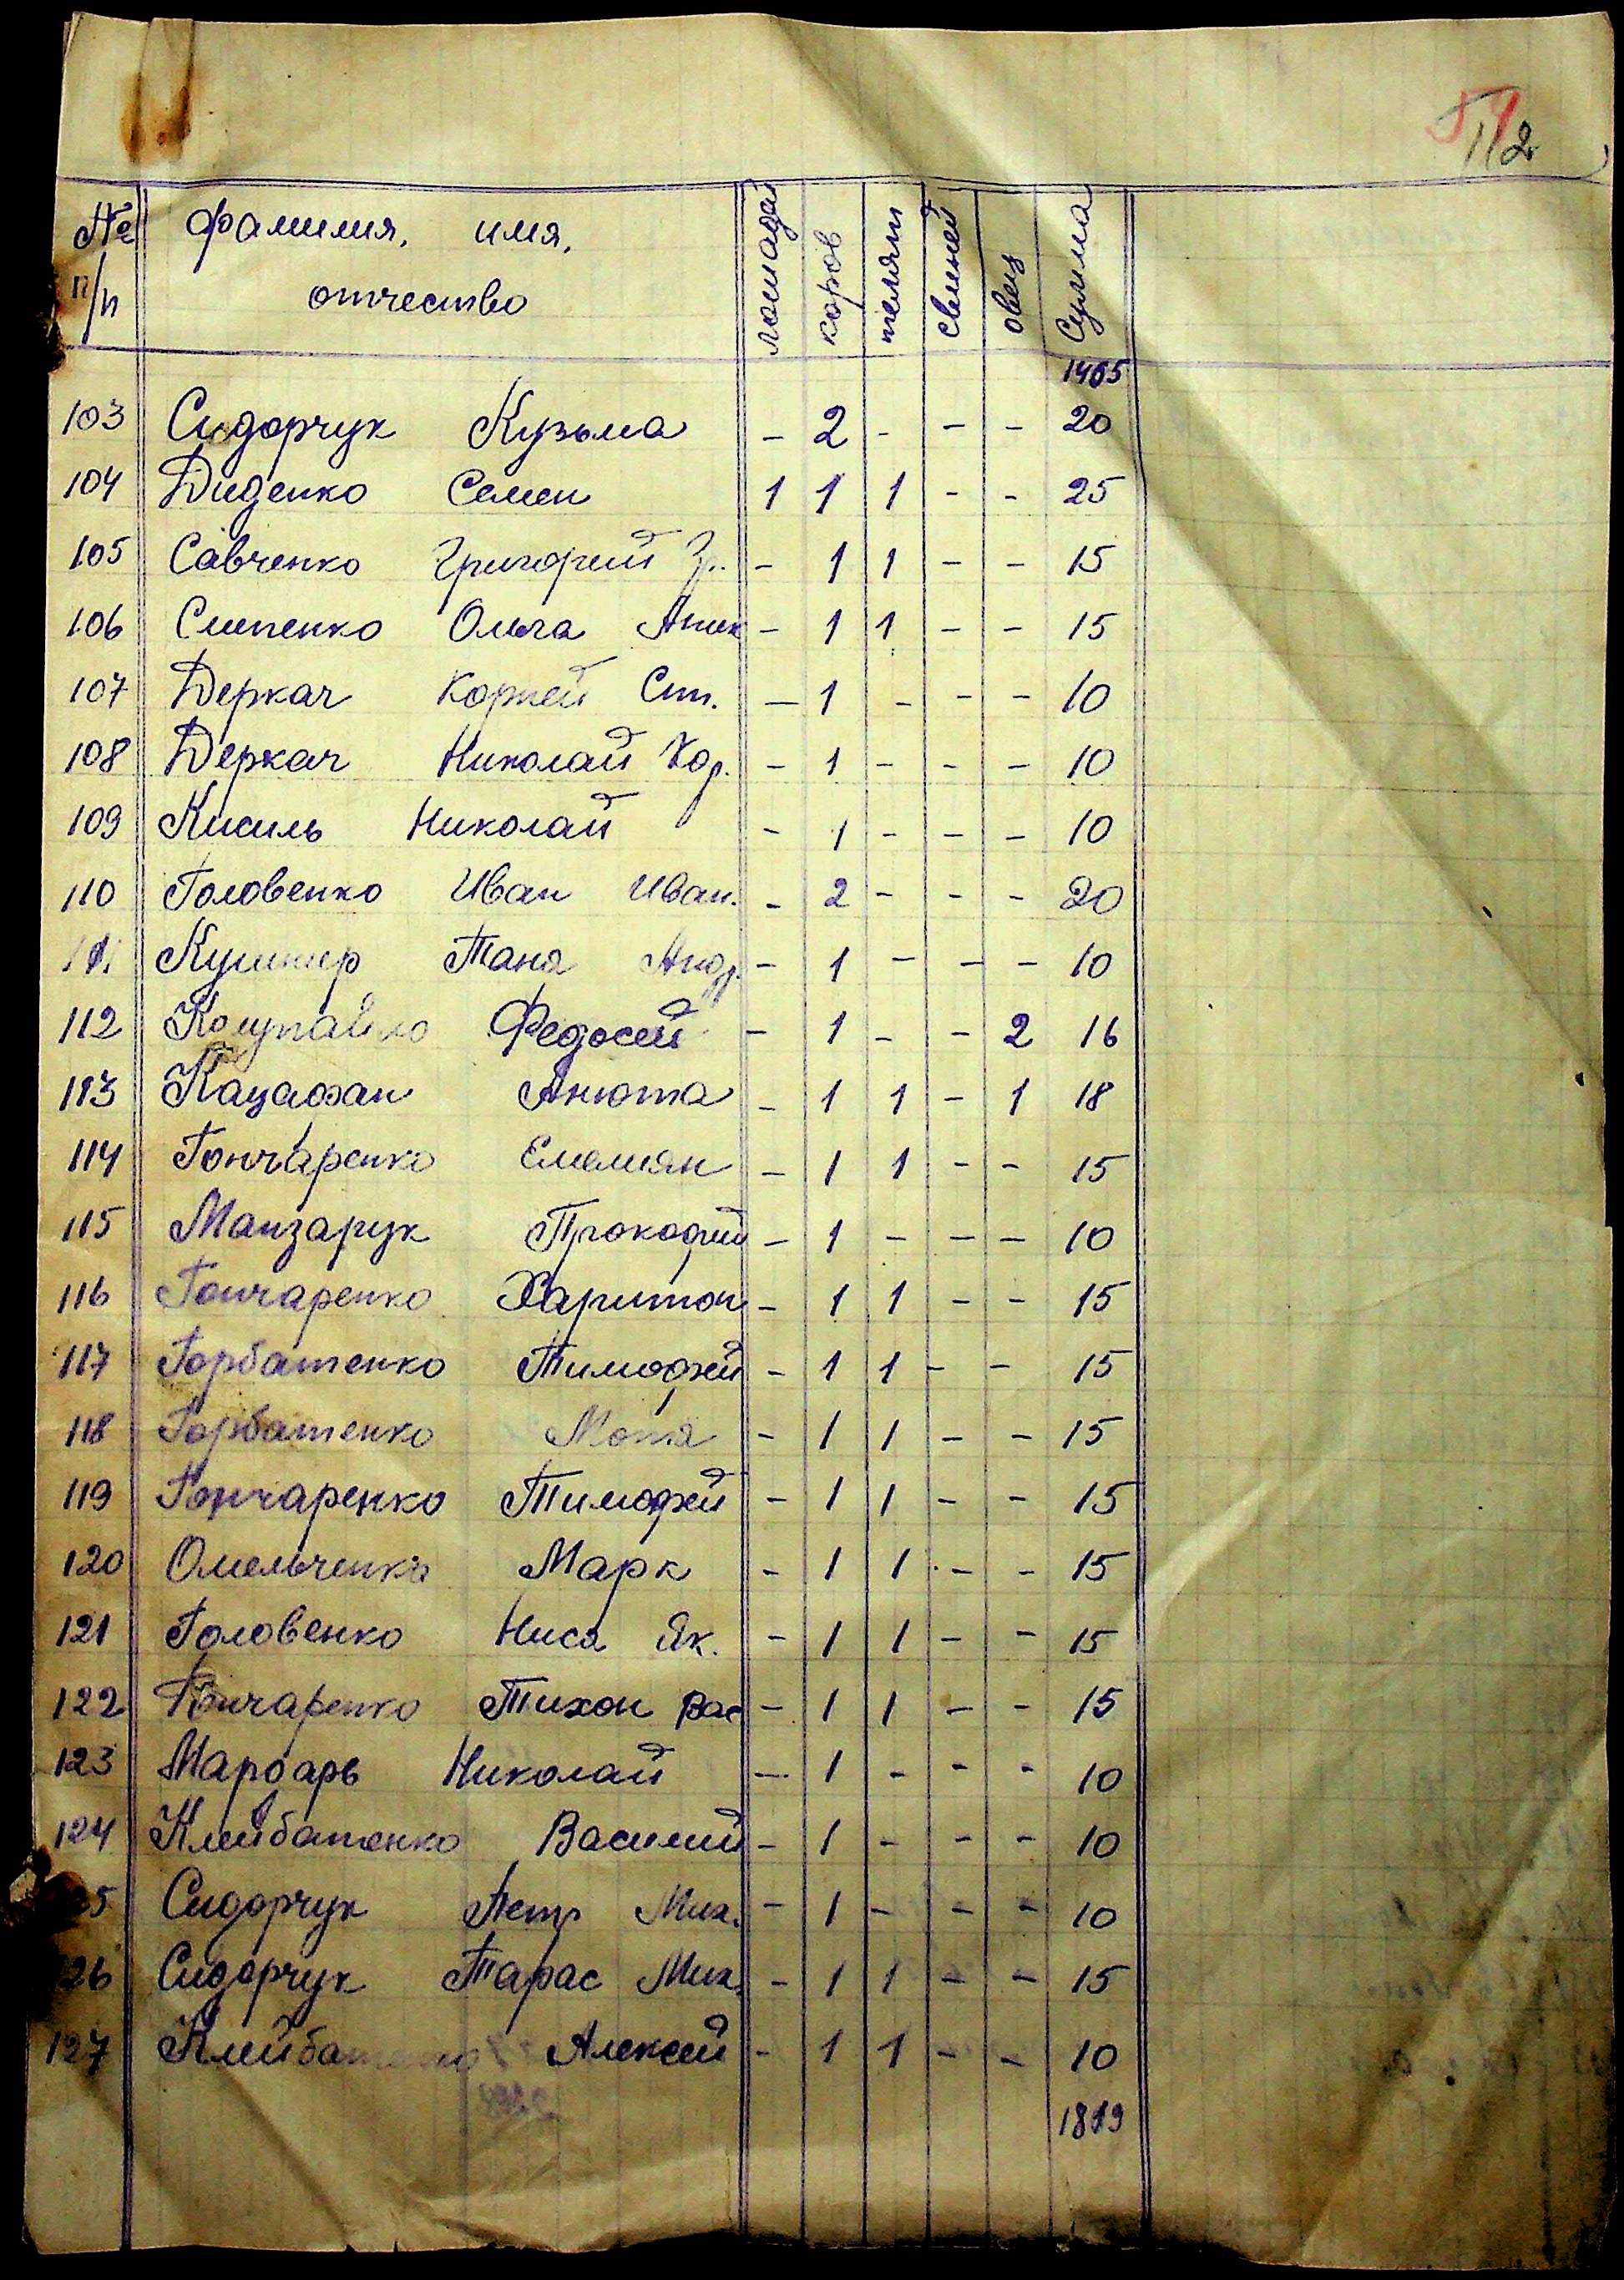 112
№ п/п фамилия, имя, отчество лошадей коров телят свиней овец Сумма
1465
103 Сидорчук Кузьма - 2 - - - 20
104 Диденко Семен 1 1 1 - - 25
105 Савченко Григорий Гр. - 1 1 - - 15
106 Слипенко Ольга - 1 1 - - 15
107 Деркач Корней Ст. - 1 - - - 10
108 Деркач Николай Кор. - 1 - - - 10
109 Кисиль Николай - 1 - - - 10
110 Головенко Иван Иван. - 2 - - - 20
111 Кушнир Таня Андр. - 1 - - - 10
112 Федосей - 1 - - 2 16
113 Кацафан Анюта - 1 1 - 1 18
114 Гончаренко Емелиян - 1 1 - - 15
115 Манзарук Прокофий - 1 - - - 10
116 Гончаренко Харитон - 1 1 - - 15
117 Горбатенко Тимофей - 1 1 - - 15
118 Горбатенко Мотя - 1 1 - - 15
119 Гончаренко Тимофей - 1 1 - - 15
120 Омельченко Марк - 1 1 - - 15
121 Головенко Ниса Як. - 1 1 - - 15
122 Гончаренко Тихон Вас - 1 1 - - 15
123 Марарь Николай - 1 - - - 10
124 Клейбатенко Василий - 1 - - - 10
25 Сидорчук Петр Мих. - 1 - - - 10
126 Сидорчук Тарас Мих. - 1 1 - - 15
127 Клейбатенко Алексей - 1 1 - - 10
1819